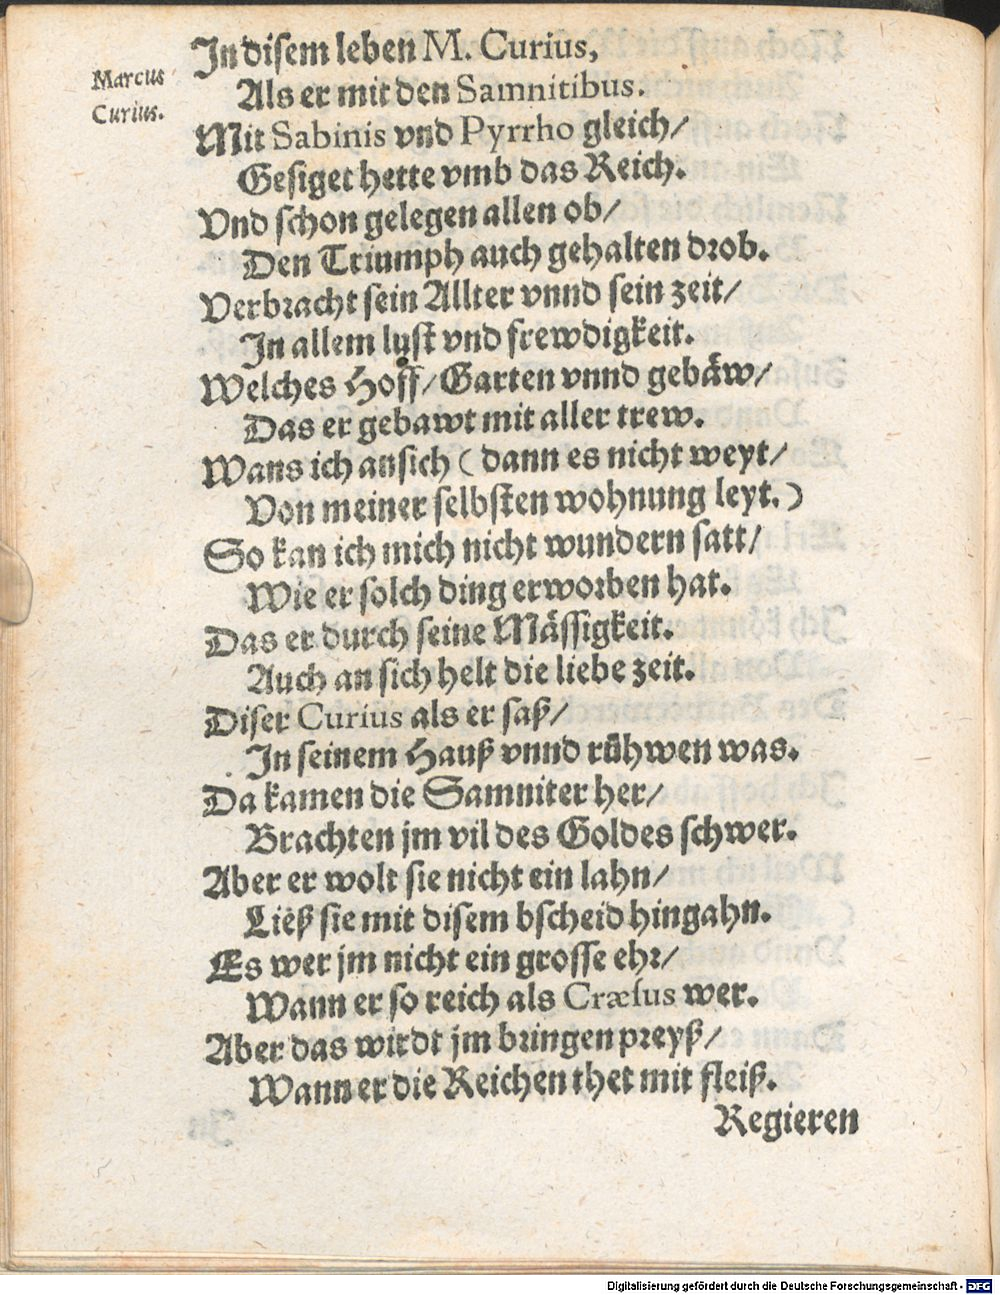 Marcus
Curius.
In disem leben M. Curius,
Als er mit den Samnitibus.
Mit Sabinis vnd Pyrrho gleich/
Gesiget hette vmb das Reich.
Vnd schon gelegen allen ob/
Den Triumph auch gehalten drob.
Verbracht sein Allter vnnd sein zeit/
In allem lust vnd frewdigkeit.
Welches Hoff/Garten vnnd gebäw/
Das er gebawt mit aller trew.
Wans ich ansich (dann es nicht weyt/
Von meiner selbsten wohnung leyt.)
So kan ich mich nicht wundern satt/
Wie er solch ding erworben hat.
Das er durch seine Mässigkeit.
Auch an sich helt die liebe zeit.
Diser Curius als er saß/
In seinem Hauß vnnd rühwen was.
Da kamen die Samniter her/
Brachten jm vil des Goldes schwer.
Aber er wolt sie nicht ein lahn/
Ließ sie mit disem bscheid hingahn.
Es wer jm nicht ein grosse ehr/
Wann er so reich als Cræsus wer.
Aber das wirdt jm bringen preyß/
Wann er die Reichen thet mit fleiß.
Regieren
Digitalisierung gefördert durch die Deutsche Forschungsgemeinschaft - DFG